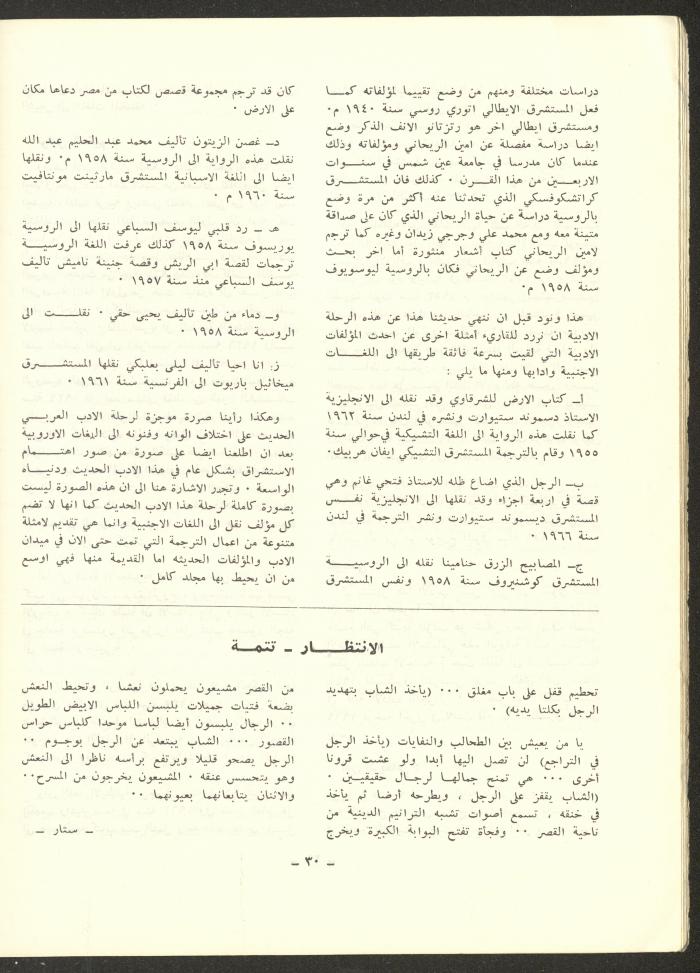 دراسات مختلفة ومنهم من وضع تقييما لمؤلفاته كمــا
فعل المستشرق الايطالي اتوري روسي سنة ١٩٤٠ م٠
ومستشرق ايطالي اخر هو رتزتانو الانف الذكر وضع
ايضا دراسة مفصلة عن امين الريحاني ومؤلفاته وذلك
عندما كان مدرسا في جامعة عين شمس في سنــوات
الاربعــين من هذا القــرن ٠ كذلك فان المستشــرق
كراتشكوفسكي الذي تحدثنا عنه أكثر من مرة وضع
بالروسية دراسة عن حياة الريحاني الذي كان على صداقة
متينة معه ومع محمد علي وجرجي زيدان وغيره كما ترجم
لامين الريحاني كتاب أشعار منثورة أما اخر بحــث
ومؤلف وضع عن الريحاني فكان بالروسية ليوسوپوف
سنة ١٩٥٨ م٠
هذا ونود قبل ان ننهي حديثنا هذا عن هذه الرحلة
الادبية ان نررد للقاريء أمثلة اخرى عن احدث المؤلفات
الادبية التي لقيت بسرعة فائقة طريقها الى اللغــات
الاجنبية وادابها ومنها ما يلي :
أــ كتاب الارض للشرقاوي وقد نقله الى الانجليزية
الاستاذ دسموند ستيوارت ونشره في لندن سنة ١٩٦٢
كما نقلت هذه الرواية الى اللغة التشيكية في حوالي سنة
١٩٥٥ وقام بالترجمة المستشرق التشيكي ايفان هربيك٠
بــ الرجل الذي اضاع ظله للاستاذ فتحي غانم وهي
قصة في اربعة اجزاء وقد نقلها الى الانجليزية نفــس
المستشرق ديسموند ستيوارت ونشر الترجمة في لندن
سنة ١٩٦٦ ٠
جــ المصابيح الزرق حنامينا نقله الى الروسيــة
المستشرق كوشنيروف سنة ١٩٥٨ ونفس المستشرق
كان قد ترجم مجموعة قصص لكتاب من مصر دعاها مكان
على الارض ٠
دــ غصن الزيتون تأليف محمد عبد الحليم عبد الله
نقلت هذه الرواية الى الروسية سنة ١٩٥٨ م٠ ونقلها
ايضا الى اللغة الاسبانية المستشرق مارثينت مونتافيت
سنة ١٩٦٠ م ٠
هـ ــ رد قلبي ليوسف السباعي نقلها الى الروسية
يوريسوف سنة ١٩٥٨ كذلك عرفت اللغة الروسيــة
ترجمات لقصة ابي الريش وقصة جنينة ناميش تأليف
يوسف السباعي منذ سنة ١٩٥٧ ٠
وــ دماء من طين تأليف يحيى حقي ٠ نقلــت الى
الروسية سنة ١٩٥٨ ٠
ز: انا احيا تأليف ليلى بعلبكي نقلها المستشــرق
ميخائيل باربوت الى الفرنسية سنة ١٩٦١ ٠
وهكذا رأينا صررة موجزة لرحلة الادب العربــي
الحديث على اختلاف الوانه وفنونه الى اللغات الاوروبية
بعد ان اطلعنا ايضا على صورة من صور اهتــمام
الاستشراق بشكل عام في هذا الادب الحديث ودنيــاه
الواسعة ٠ وتجدر الاشارة هنا الى ان هذه الصورة ليست
بصورة كاملة لرحلة هذا الادب الحديث كما انها لا تضم
كل مؤلف نقل الى اللغات الاجنبية وانما هي تقديم لامثلة
متنوعة من اعمال الترجمة التي تمت حتى الان في ميدان
الادب والمؤلفات الحديثه اما القديمة منها فهي اوسع
من ان يحيط بها مجلد كامل ٠
الانتظــار ــ تتمة
تحطيم قفل على باب مغلق ٠٠٠ (يأخذ الشاب بتهديد
الرجل بكلتا يديه) ٠
يا من يعيش بين الطحالب والنفايات (يأخذ الرجل
في التراجع) لن تصل اليها أبدا ولو عشت قرونا
أخرى ٠٠٠ هي تمنح جمالها لرجال حقيقيــين ٠
(الشاب يقفز على الرجل ، ويطرحه أرضا ثم يأخذ
في خنقه ، تسمع أصوات تشبه الترانيم الدينية من
ناحية القصر ٠٠ وفجأة تفتح البوابة الكبيرة ويخرج
من القصر مشيعون يحملون نعشا ، وتحيط النعش
بضعة فتيات جميلات يلبسن اللباس الابيض الطويل
٠٠ الرجال يلبسون أيضا لباسا موحدا كلباس حراس
القصور ٠٠٠ الشاب يبتعد عن الرجل بوجــوم ٠٠
الرجل يصحو قليلا ويرتفع برأسه ناظرا الى النعش
وهو يتحسس عنقه ٠ المشيعون يخرجون من المسرح٠٠
والاثنان يتابعانهما بعيونهما ٠٠
ــ ستار ــ
ــ ٣٠ ــ